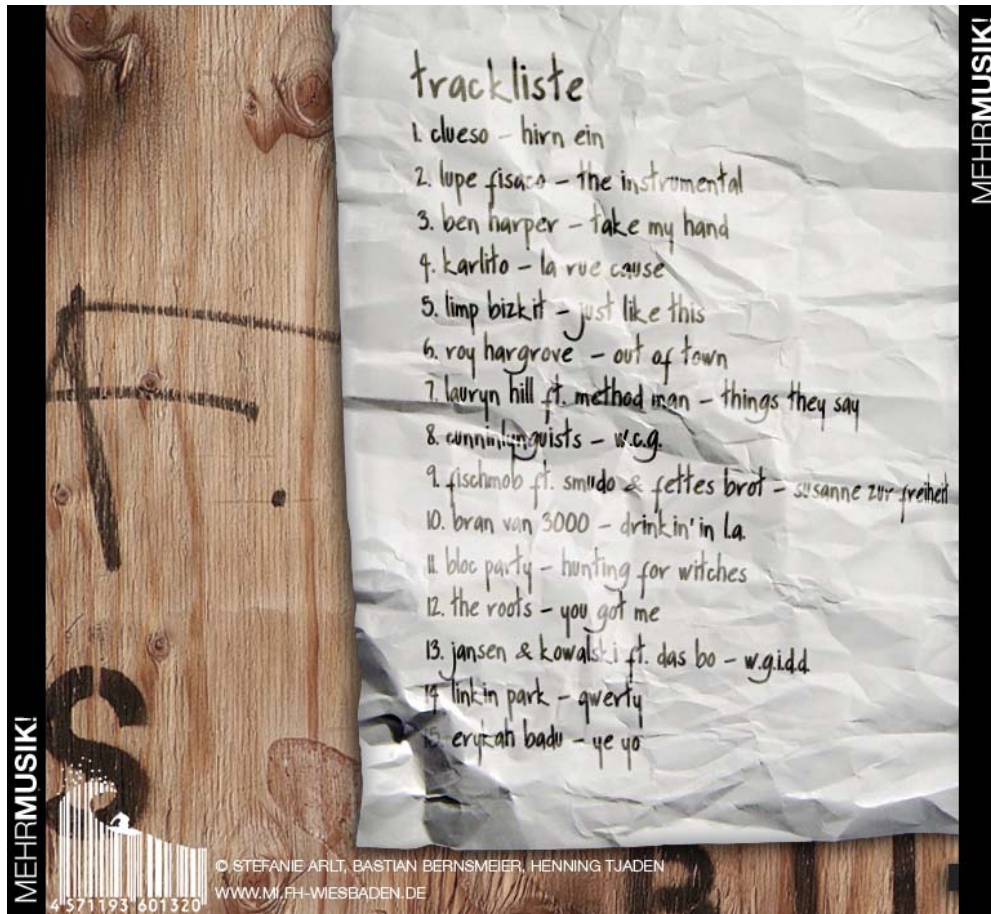 MEHRMUSIK!
trackliste
1. clueso - hirn ein
2. lupe fisaco - the instrumental
3. ben harper - take my hand
4. karlito - la rue cause
5. limp bizkit - just like this
6. roy hargrove - out of town
7. lauryn hill ft. method man - things they say
8. cunninlynguists - w.c.g.
9. fischmob ft. smudo & fettes brot - susanne zur freiheit
10. bran van 3000 - drinkin' in l.a.
11. bloc party - hunting for witches
12. the roots - you got me
13. jansen & kowalski ft. das bo - w.g.i.d.d.
14. linkin park - qwerty
15. erykah badu - ye yo
MEHRMUSIK!
S
4 571193 601320
© STEFANIE ARLT, BASTIAN BERNSMEIER, HENNING TJADEN
WWW.MI.FH-WIESBADEN.DE